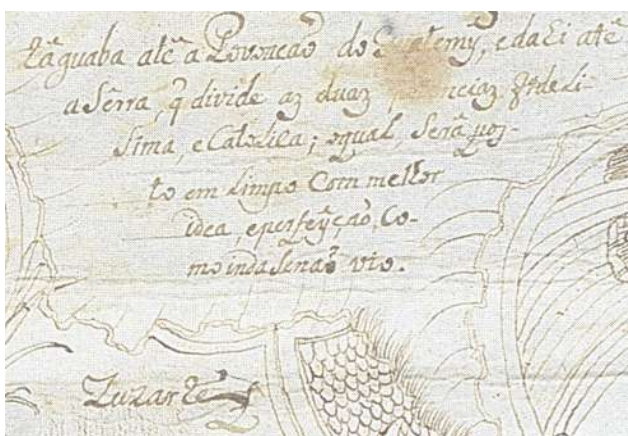 taguaba atê a Povoação do Guatemy, e daLi atê
a Sêrra, q̃ divide az duaz potenciaz Fideli-
sima, e Catolica; o qual, será pos-
to em Limpo Com melhor
idea, e perfeyçaõ, Co-
mo inda Senaõ vio.
Juzarte